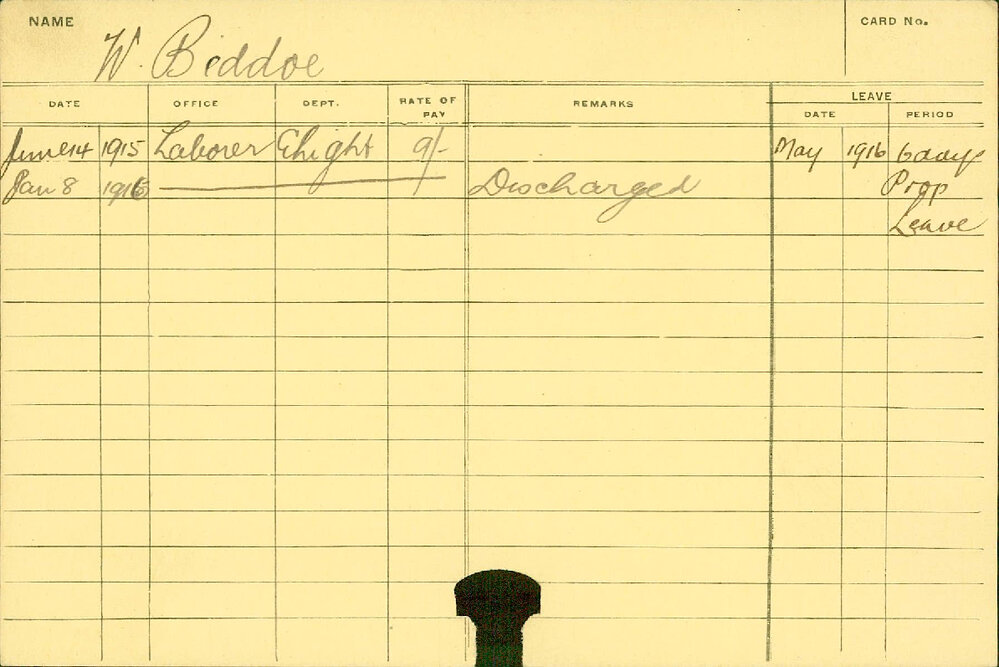 NAME W. Biddoe CARD No.
DATE OFFICE DEPT. RATE OF PAY REMARKS LEAVE
DATE PERIOD
June 14 1915 Laborer Elight 9/- May 1916 6 days
Jan 8 1916 Discharged Prop
Leave